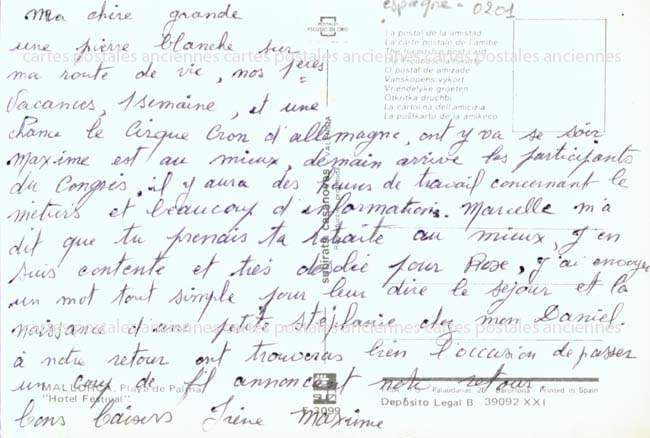 espagne - 0201
Ma chère grande
une pierre blanche sur
ma route de vie, nos 1ères
Vacances, 1 semaine, et une
chance le Cirque Cron d'allemagne, ont y va se soir
Maxime est au mieux, demain arrive les participants
du Congrès, il y aura des heures de travail concernant le
métiers et beaucoup d'informations. Marcelle m'a
dit que tu prenais ta retraite au mieux, j'en
suis contente et très désolée pour Rose, j'ai envoyer
un mot tout simple pour leur dire le séjour et la
naissance d'une petite Stéphanie chez mon Daniel
à notre retour ont trouveras bien l'occasion de passer
un coup de fil annoncant notre retour.
bons baisers Irène Maxime
POSTALES
ESCUDO DE ORO
La postal de la amistad
La carte postale de l'amitié
The friendship post card
O postal de amizade
Vanskapens vykort
Vriendelyke groeten
Otkritka druchbi
La cartolina dell'amicizia
La poŝtkarto de la amikeco
subirats casanovas
MALLORCA. Playa de Palma
"Hotel Festival"
Barcelona - Printed in Spain
Depósito Legal B. 39092 XXI
cartes postales anciennes cartes postales anciennes cartes postales anciennes
cartes postales anciennes cartes postales anciennes cartes postales anciennes